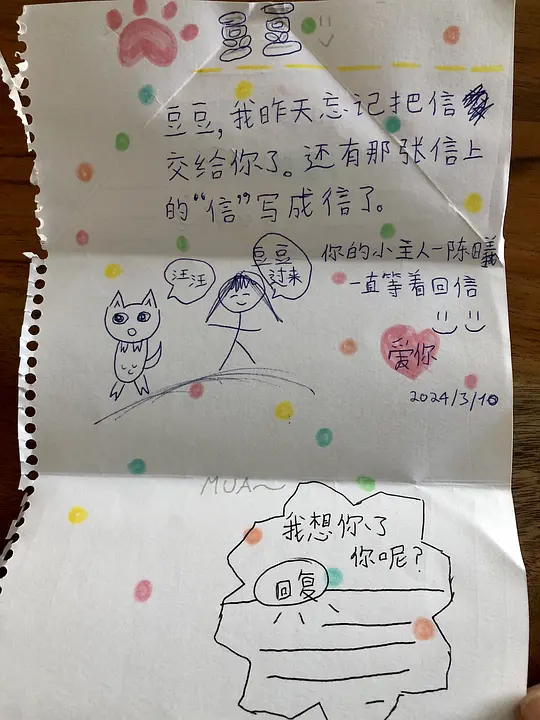 豆豆
豆豆,我昨天忘记把信
交给你了。还有那张信上
的“信”写成信了。
你的小主人一陈曦
一直等着回信
汪汪
豆豆
过来
爱你
2024/3/10
MUA~
我想你了
你呢?
回复